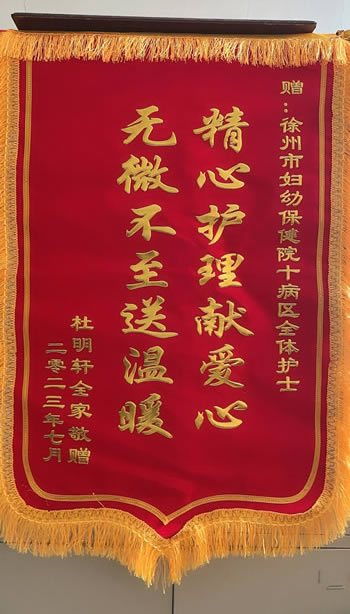 赠：徐州市妇幼保健院十病区全体护士
精心护理献爱心
无微不至送温暖
杜明轩全家敬赠
二零二三年七月